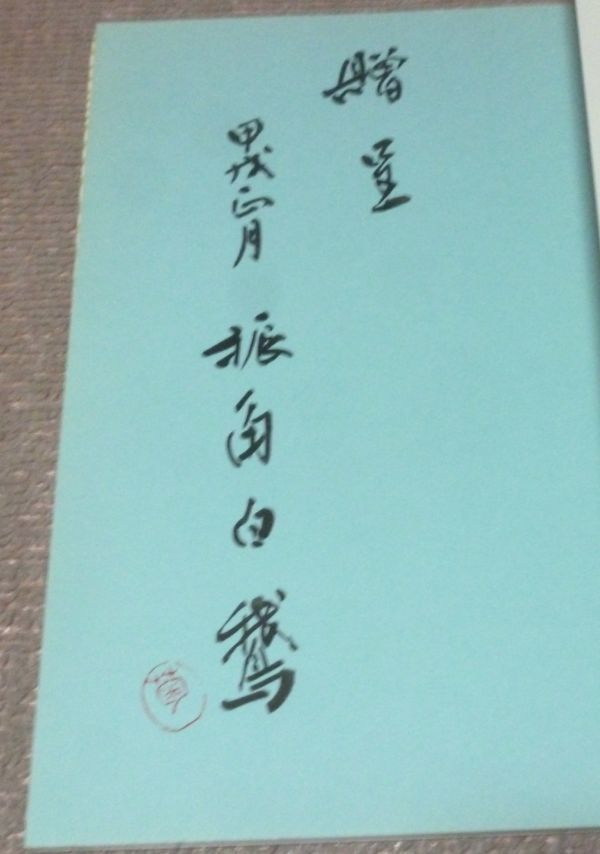 贈呈
甲戌正月 振角白鵞